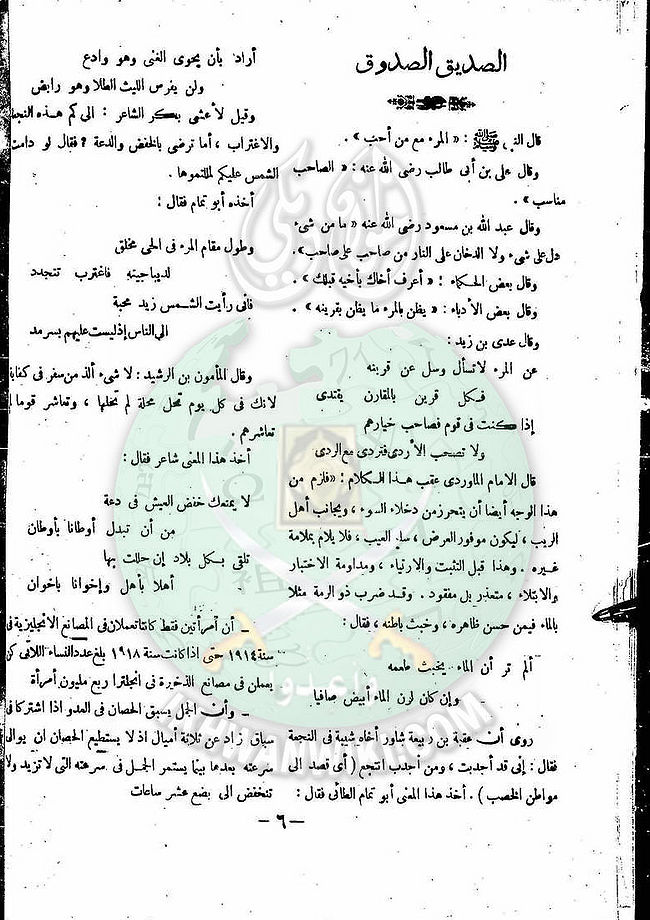 الصديق الصدوق
قال النبي ﷺ : « المرء مع من أحب » .
وقال على بن أبى طالب رضى الله عنه : « الصاحب
مناسب » .
وقال عبد الله بن مسعود رضى الله عنه « ما من شىء
دل على شىء ولا الدخان على النار من صاحب على صاحب» .
وقال بعض الحكماء : « أعرف أخاك بأخيه قبلك » .
وقال بعض الأدباء : « يظن بالمرء ما يظن بقرينه » .
وقال عدى بن زيد :
عن المرء لا تسأل وسل عن قرينه
فكل قرين بالمقارن يقتدى
إذا كنت فى قوم فصاحب خيارهم
ولا تصحب الأردى فتردى مع الردى
قال الامام الماوردى عقب هذا الكلام : «فلزم من
هذا الوجه أيضا أن يتحرز من دخلاء السوء ، ويجانب أهل
الريب ، ليكون موفور العرض ، سليم العيب ، فلا يلام بملامة
غيره . وهذا قبل التثبت والارتياء ، ومداومة الاختبار
والابتلاء ، متعذر بل مفقود . وقد ضرب ذو الرمة مثلا
بالماء فيمن حسن ظاهره ، وخبث باطنه ، فقال :
ألم تر أن الماء يخبث طعمه
وإن كان لون الماء أبيض صافيا
روى أن عقبة بن ربيعة شاور أخاه شيبة فى النجعة
فقال : إنى قد أجدبت ، ومن أجدب انتجع ( أى قصد الى
مواطن الخصب ) . أخذ هذا المعنى أبو تمام الطائى فقال :
أراد بأن يحوى الغنى وهو وادع
ولن يفرس الليث الطلا وهو رابض
وقيل لأعشى بكر الشاعر : الى كم هذه النجعة
والاغتراب ، أما ترضى بالخفض والدعة ؟ فقال لو دامت
الشمس عليكم لمللتموها .
أخذه أبو تمام فقال :
وطول مقام المرء فى الحى مخلق
لديباجتيه فاغترب تتجدد
فانى رأيت الشمس زيد محبة
الى الناس إذ ليست عليهم بسرمد
وقال المأمون بن الرشيد : لا شىء ألذ من سفر فى كفاية
لانك فى كل يوم تحل محلة لم تحلها ، وتعاشر قوما لم
تعاشرهم .
أخذ هذا المعنى شاعر فقال :
لا يمنعك خفض العيش فى دعة
من أن تبدل أوطانا بأوطان
تلقى بكل بلاد إن حللت بها
أهلا بأهل وإخوانا باخوان
– أن أمرأتين فقط كانتا تعملان فى المصانع الانجليزية فى
سنة ١٩١٤ حتى اذا كانت سنة ١٩١٨ بلغ عدد النساء اللائى كن
يعملن فى مصانع الذخيرة فى انجلترا ربع مليون أمرأة
– وأن الجمل يسبق الحصان فى العدو اذا اشتركا فى
سباق زاد عن ثلاثة أميال اذ لا يستطيع الحصان ان يوالى
سرعته بعدها بينما يستمر الجمل فى سرعته التى لا تزيد ولا
تنخفض الى بضع عشر ساعات
– ٦ –